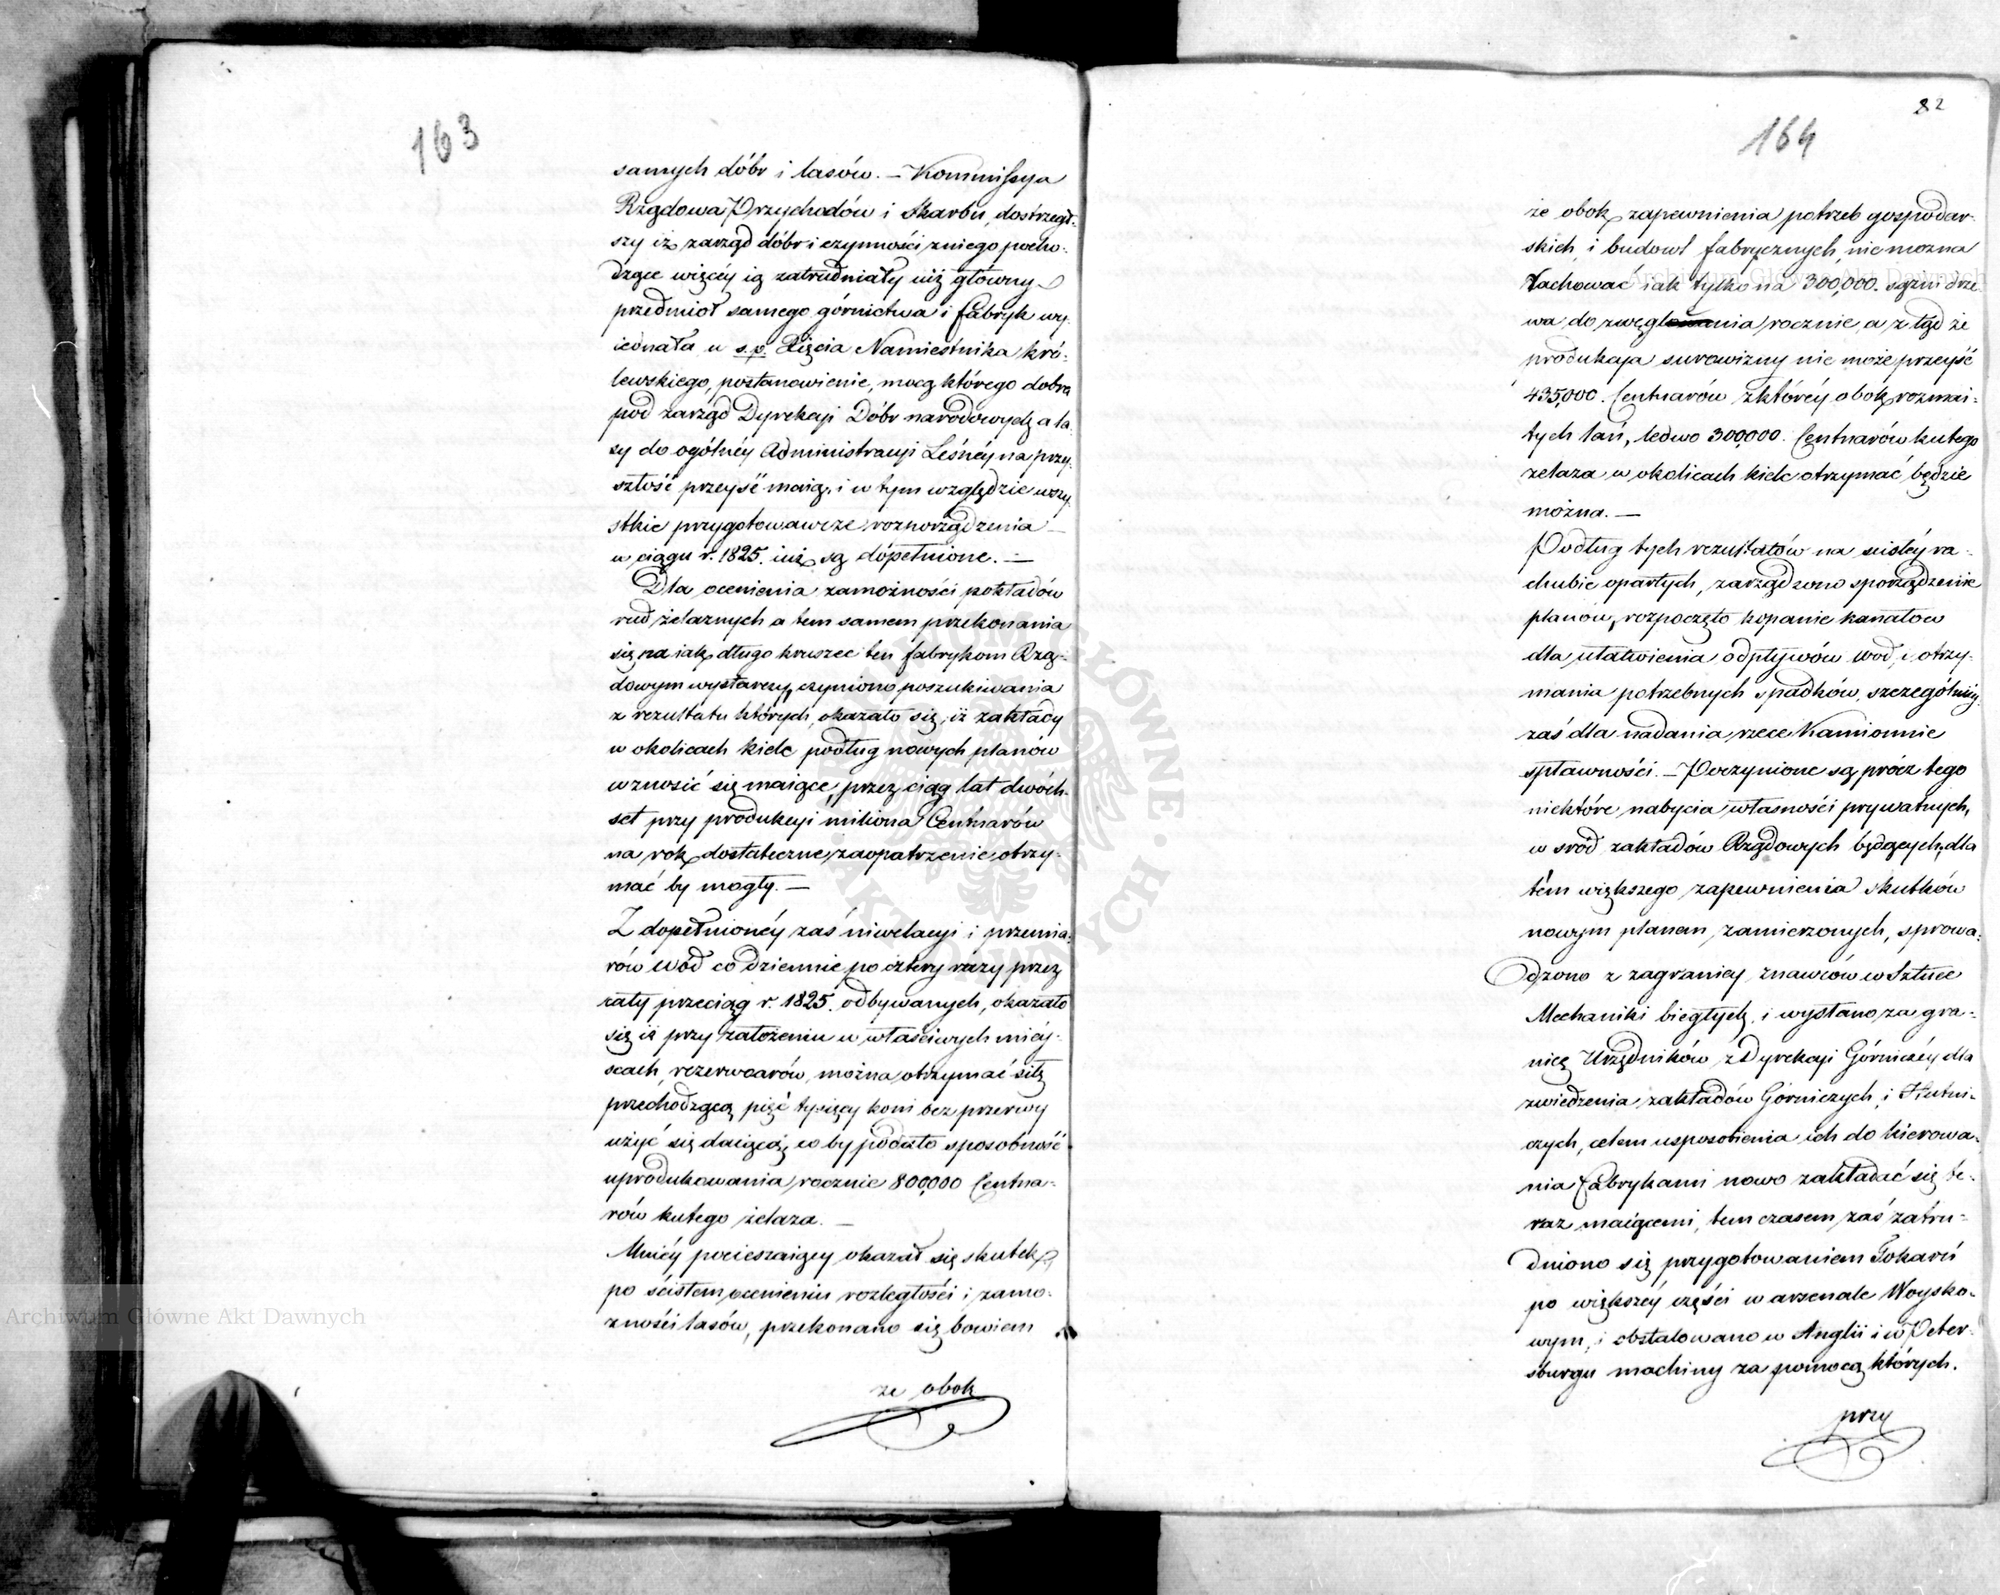 163
samych dóbr i lasów. — Kommissya
Rządowa Przychodów i Skarbu, dostrzegł-
szy iż zarząd dóbr i czynności z niego pocho-
dzące więcéy ią zatrudniały niż główny
przedmiot samego górnictwa i fabryk wy-
iednała u s.p. Xięcia Namiestnika kró-
lewskiego, postanowienie, mocą którego dobra
pod zarząd Dyrekcyi Dóbr narodowych, a la-
sy do ogólnéy Administracyi Leśnéy na przy-
szłość przeyść maią, i w tym względzie wszy-
stkie przygotowawcze rozporządzenia
w ciągu r. 1825. iuż są dopełnione. —
Dla ocenienia zamożności pokładów
rud żelaznych a tem samem przekonania
się na iak długo kruszec ten fabrykom Rzą-
dowym wystarczy, czyniono poszukiwania
z rezultatu których, okazało się, iż zakłady
w okolicach kielc podług nowych planów
wznosić się maiące, przez ciąg lat dwóch-
set przy produkcyi miliona Centnarów
na rok, dostateczne zaopatrzenie otrzy-
mać by mogły. —
Z dopełnionéy zaś niwelacyi i przemia-
rów wód codziennie po cztery razy przez
cały przeciąg r. 1825. odbywanych, okazało
się iż przy założeniu w właściwych miéy-
scach, rezerwoarów, można otrzymać siłę
przechodzącą pięć tysięcy koni bez przerwy
użyć się daiącą, co by podało sposobność
uprodukowania rocznie 800,000 Centna-
rów kutego żelaza. —
Mniéy pocieszaiący okazał się skutek
po ścisłem ocenieniu rozległości i zamo-
żności lasów, przekonano się bowiem
że obok
82
164
że obok zapewnienia potrzeb gospodar-
skich, i budowl fabrycznych, nie można
rachować iak tylko na 300,000. sążni drze-
wa do zwęglania rocznie, a z tąd że
produkcya surowizny nie może przeyść
435,000. Centnarów z któréy obok rozmai-
tych lań, ledwo 300,000. Centnarów kutego
żelaza w okolicach kielc otrzymać będzie
można. —
Podług tych rezultatów na scisłéy ra-
chubie opartych, zarządzono sporządzenie
planów, rozpoczęto kopanie kanałów
dla ułatwienia odpływów wod, i otrzy-
mania potrzebnych spadków, szczególniéy
zaś dla nadania rzece Kamionnie
spławności. — Poczynione są prócz tego
niektóre nabycia własności prywatnych,
w sród zakładów Rządowych będących, dla
tém większego zapewnienia skutków
nowym planem zamierzonych, sprowa-
dzono z zagranicy znawców w Sztuce
Mechaniki biegłych, i wysłano za gra-
nicę Urzędników z Dyrekcyi Górniczéy dla
zwiedzenia zakładów Górniczych, i Hutni-
czych, celem usposobienia ich do kierowa-
nia fabrykami nowo zakładać się te-
raz maiącemi, tem czasem zaś zatru-
dniono się przygotowaniem Tokarń
po większéy części w arsenale Woysko-
wym, i obstalowano w Anglii i w Peter-
sburgu machiny za pomocą których.
przy
Archiwum Główne Akt Dawnych
Archiwum Główne Akt Dawnych